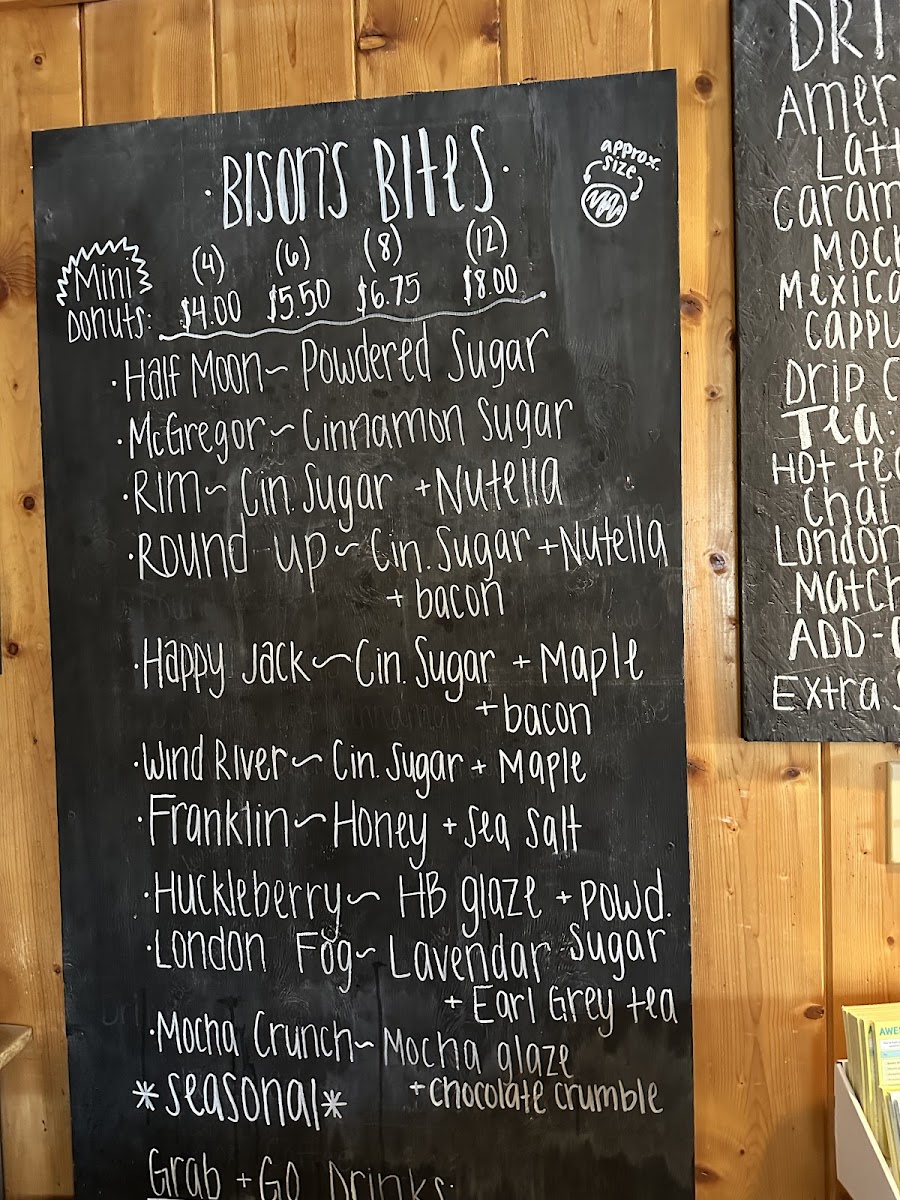 ·BISON'S BITES·
approx. size
Mini Donuts:
(4) (6) (8) (12)
$4.00 $5.50 $6.75 $8.00
·Half Moon~ Powdered Sugar
·McGregor~Cinnamon Sugar
·Rim~ Cin. Sugar +Nutella
·Round up~Cin. Sugar+Nutella
+ bacon
·Happy Jack~Cin. Sugar + Maple
+bacon
·Wind River~ Cin. Sugar + Maple
·Franklin~Honey + Sea Salt
·Huckleberry~ HB glaze + powd.
Sugar
·London Fog~Lavendar
+ Earl Grey tea
·Mocha Crunch~Mocha glaze
+chocolate crumble
*Seasonal*
Grab + Go Drinks:
DRI
Amer
Latt
Caram
Moch
Mexica
Cappu
Drip C
Tea:
Hot tea
Chai
London
Match
ADD-
Extra S
AWE